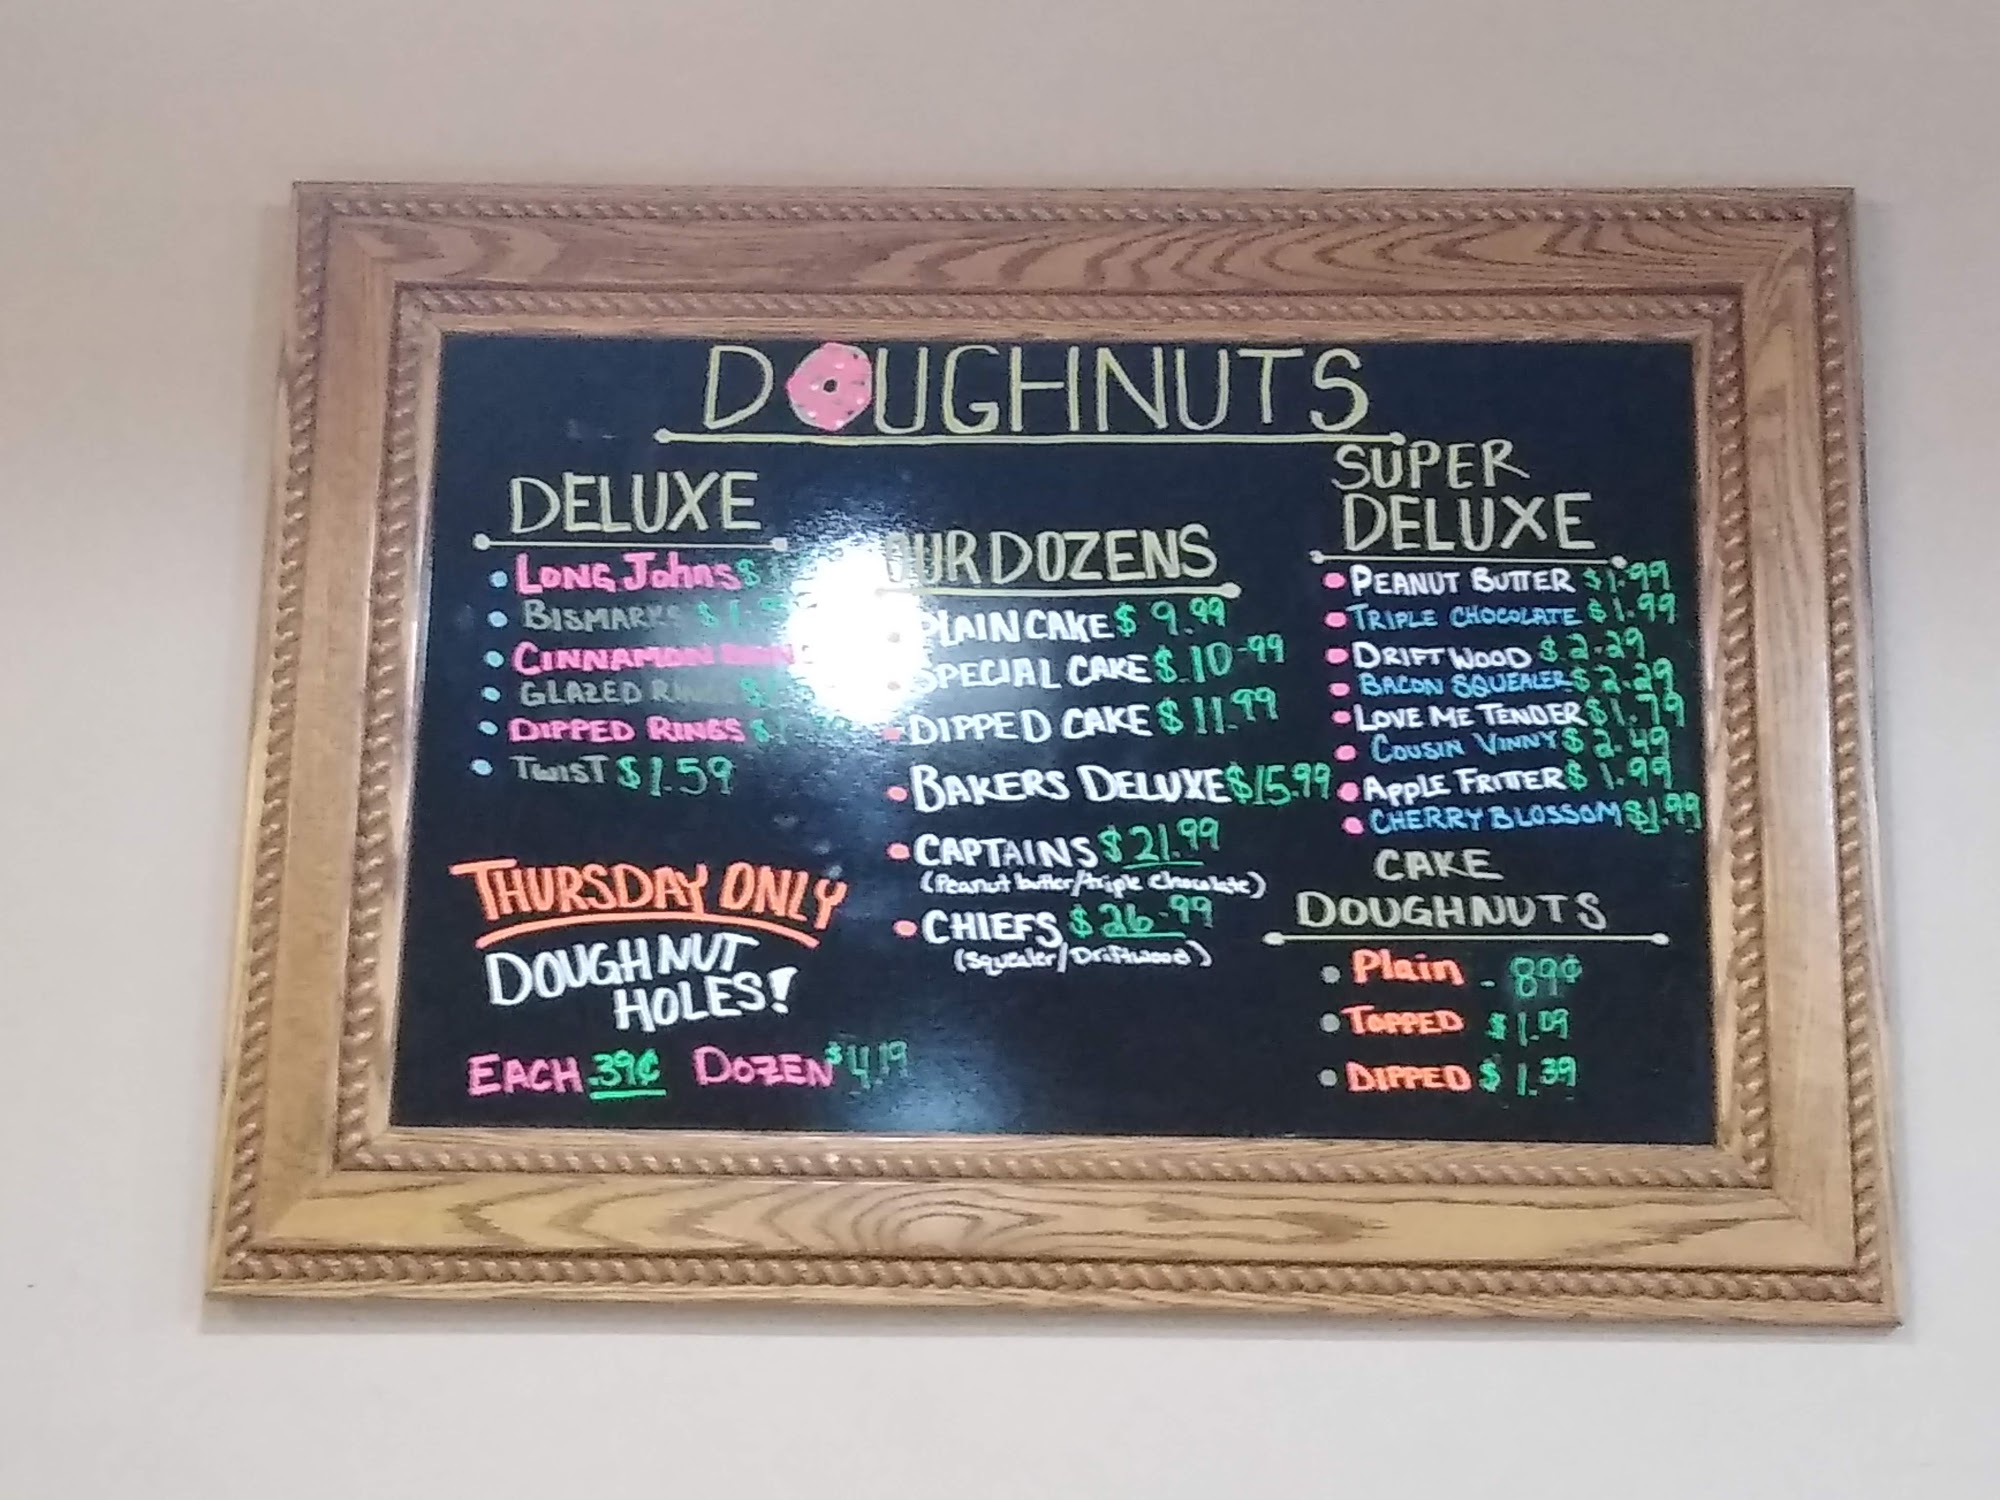 DOUGHNUTS
DELUXE
• LONG JOHNS $
• BISMARKS $1.
• CINNAMON
• GLAZED RINGS $
• DIPPED RINGS $1.
• TWIST $1.59
THURSDAY ONLY
DOUGHNUT
HOLES!
EACH .39¢ DOZEN $4.19
OUR DOZENS
• PLAIN CAKE $9.99
• SPECIAL CAKE $10.99
• DIPPED CAKE $11.99
• BAKERS DELUXE $15.99
• CAPTAINS $21.99
(Peanut butter/triple chocolate)
• CHIEFS $26.99
(squealer/Driftwood)
SUPER
DELUXE
• PEANUT BUTTER $1.99
• TRIPLE CHOCOLATE $1.99
• DRIFTWOOD $2.29
• BACON SQUEALER $2.29
• LOVE ME TENDER $1.79
• COUSIN VINNY $2.49
• APPLE FRITTER $1.99
• CHERRY BLOSSOM $1.99
CAKE
DOUGHNUTS
• Plain - 89¢
• TOPPED $1.09
• DIPPED $1.39